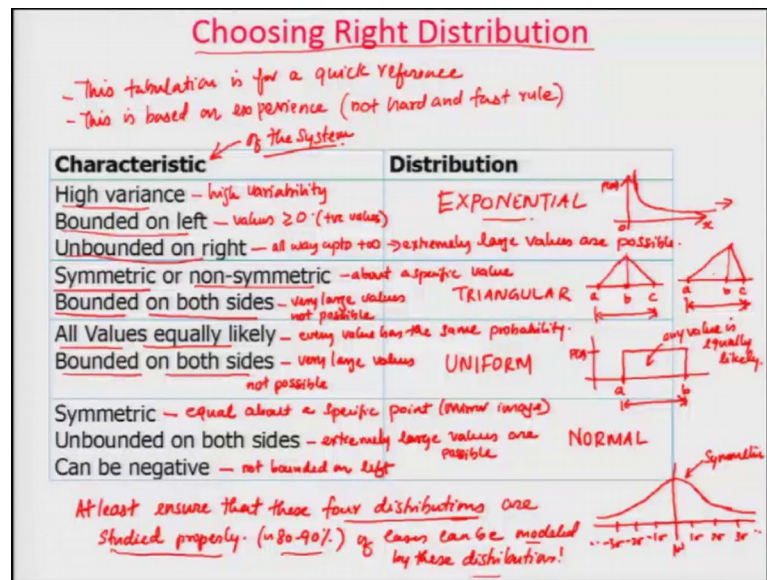 Choosing Right Distribution
- This tabulation is for a quick reference
- This is based on experience (not hard and fast rule)
of the system
Characteristic Distribution
High variance – high variability
Bounded on left – values ≥ 0 (+ve values)
Unbounded on right – all way upto +∞ → extremely large values are possible.
EXPONENTIAL
P(x)
0
x
Symmetric or non-symmetric – about a specific value
Bounded on both sides – very large values
not possible
TRIANGULAR
a b c
a b c
All Values equally likely – every value has the same probability.
Bounded on both sides – very large values
not possible
UNIFORM
P(x)
a b
any value is
equally
likely.
Symmetric – equal about a specific point (mirror image)
Unbounded on both sides – extremely large values are
possible
Can be negative – not bounded on left
NORMAL
Symmetric
-3σ -2σ -1σ μ 1σ 2σ 3σ
At least ensure that these four distributions are
studied properly. (~80-90%) of cases can be modeled
by these distribution!